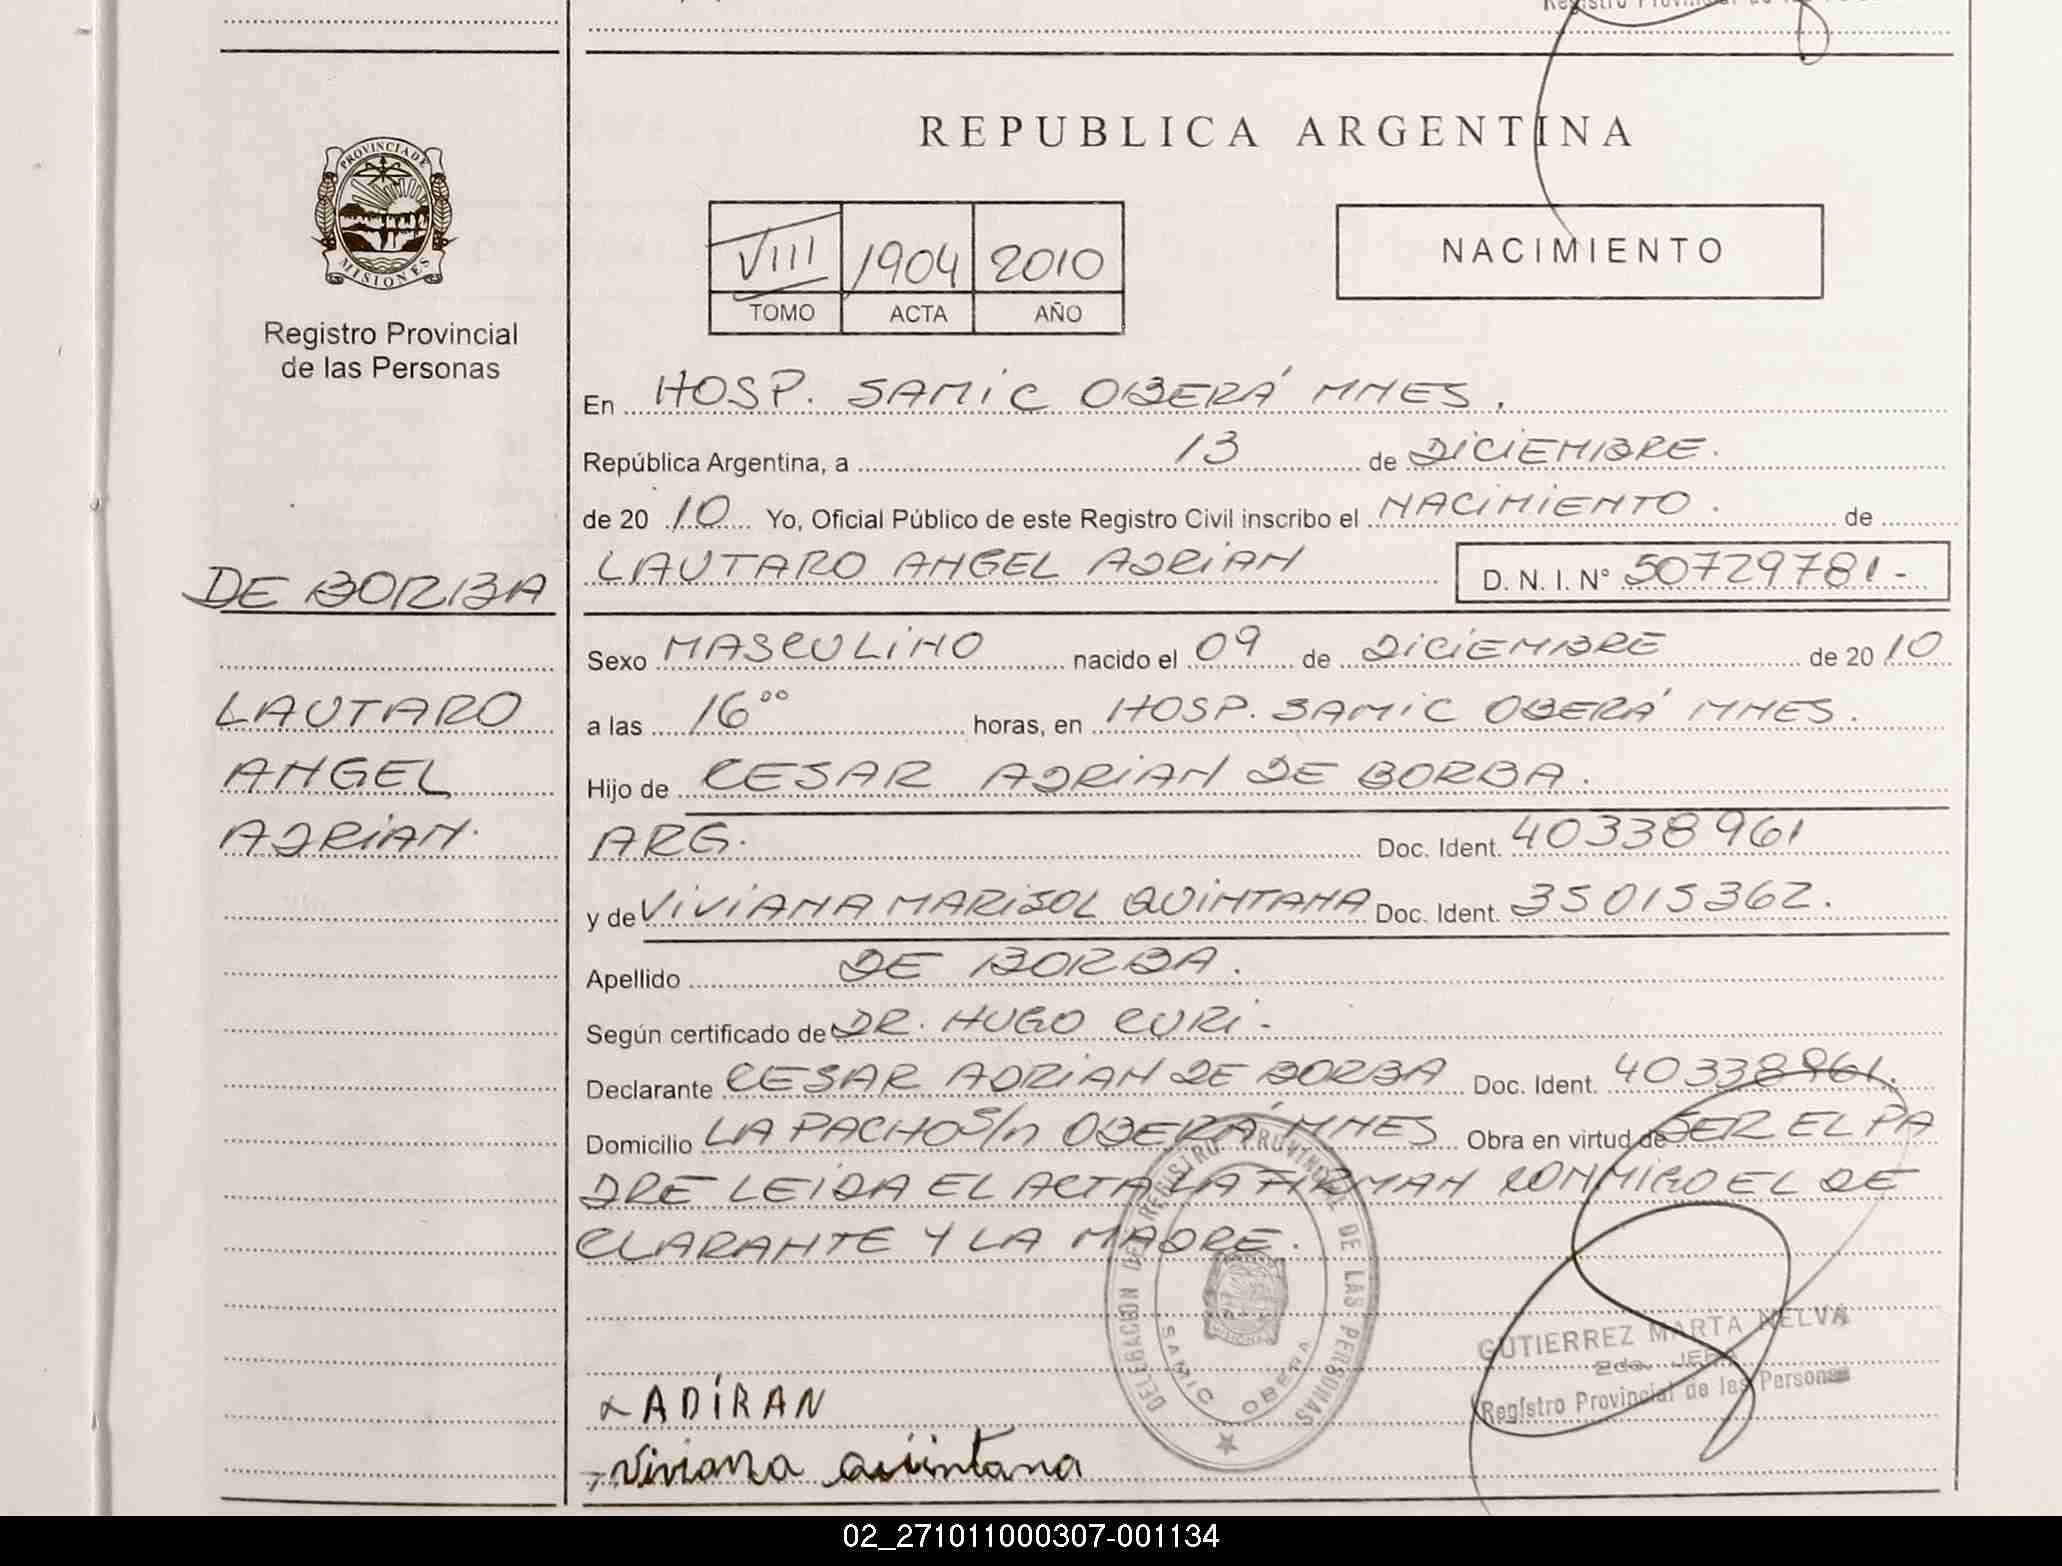 REPUBLICA ARGENTINA
PROVINCIA DE
MISIONES
Registro Provincial
de las Personas
VIII 1904 2010
TOMO ACTA AÑO
NACIMIENTO
En HOSP. SAMIC OBERÁ MNES.
República Argentina, a 13 de DICIEMBRE.
de 20 10 Yo, Oficial Público de este Registro Civil inscribo el NACIMIENTO. de
LAUTARO ANGEL ADRIAN D. N. I. N° 50729781-
DE BORBA
LAUTARO
ANGEL
ADRIAN.
Sexo MASCULINO nacido el 09 de DICIEMBRE de 20 10
a las 16⁰⁰ horas, en HOSP. SAMIC OBERÁ MNES.
Hijo de CESAR ADRIAN DE BORBA.
ARG. Doc. Ident. 40338961
y de VIVIANA MARISOL QUINTANA Doc. Ident. 35015362.
Apellido DE BORBA.
Según certificado de DR. HUGO CURI-
Declarante CESAR ADRIAN DE BORBA Doc. Ident. 40338961.
Domicilio LA PACHO S/n OBERÁ MNES Obra en virtud de SER EL PA
DRE LEIDA EL ACTA LA FIRMAN CONMIGO EL DE
CLARANTE Y LA MADRE.
DELEGACION DEL REGISTRO PROVINCIAL DE LAS PERSONAS
SAMIC OBERA
GUTIERREZ MARTA NELVA
2da. JEFA
Registro Provincial de las Personas
ADIRAN
Viviana Quintana
02_271011000307-001134